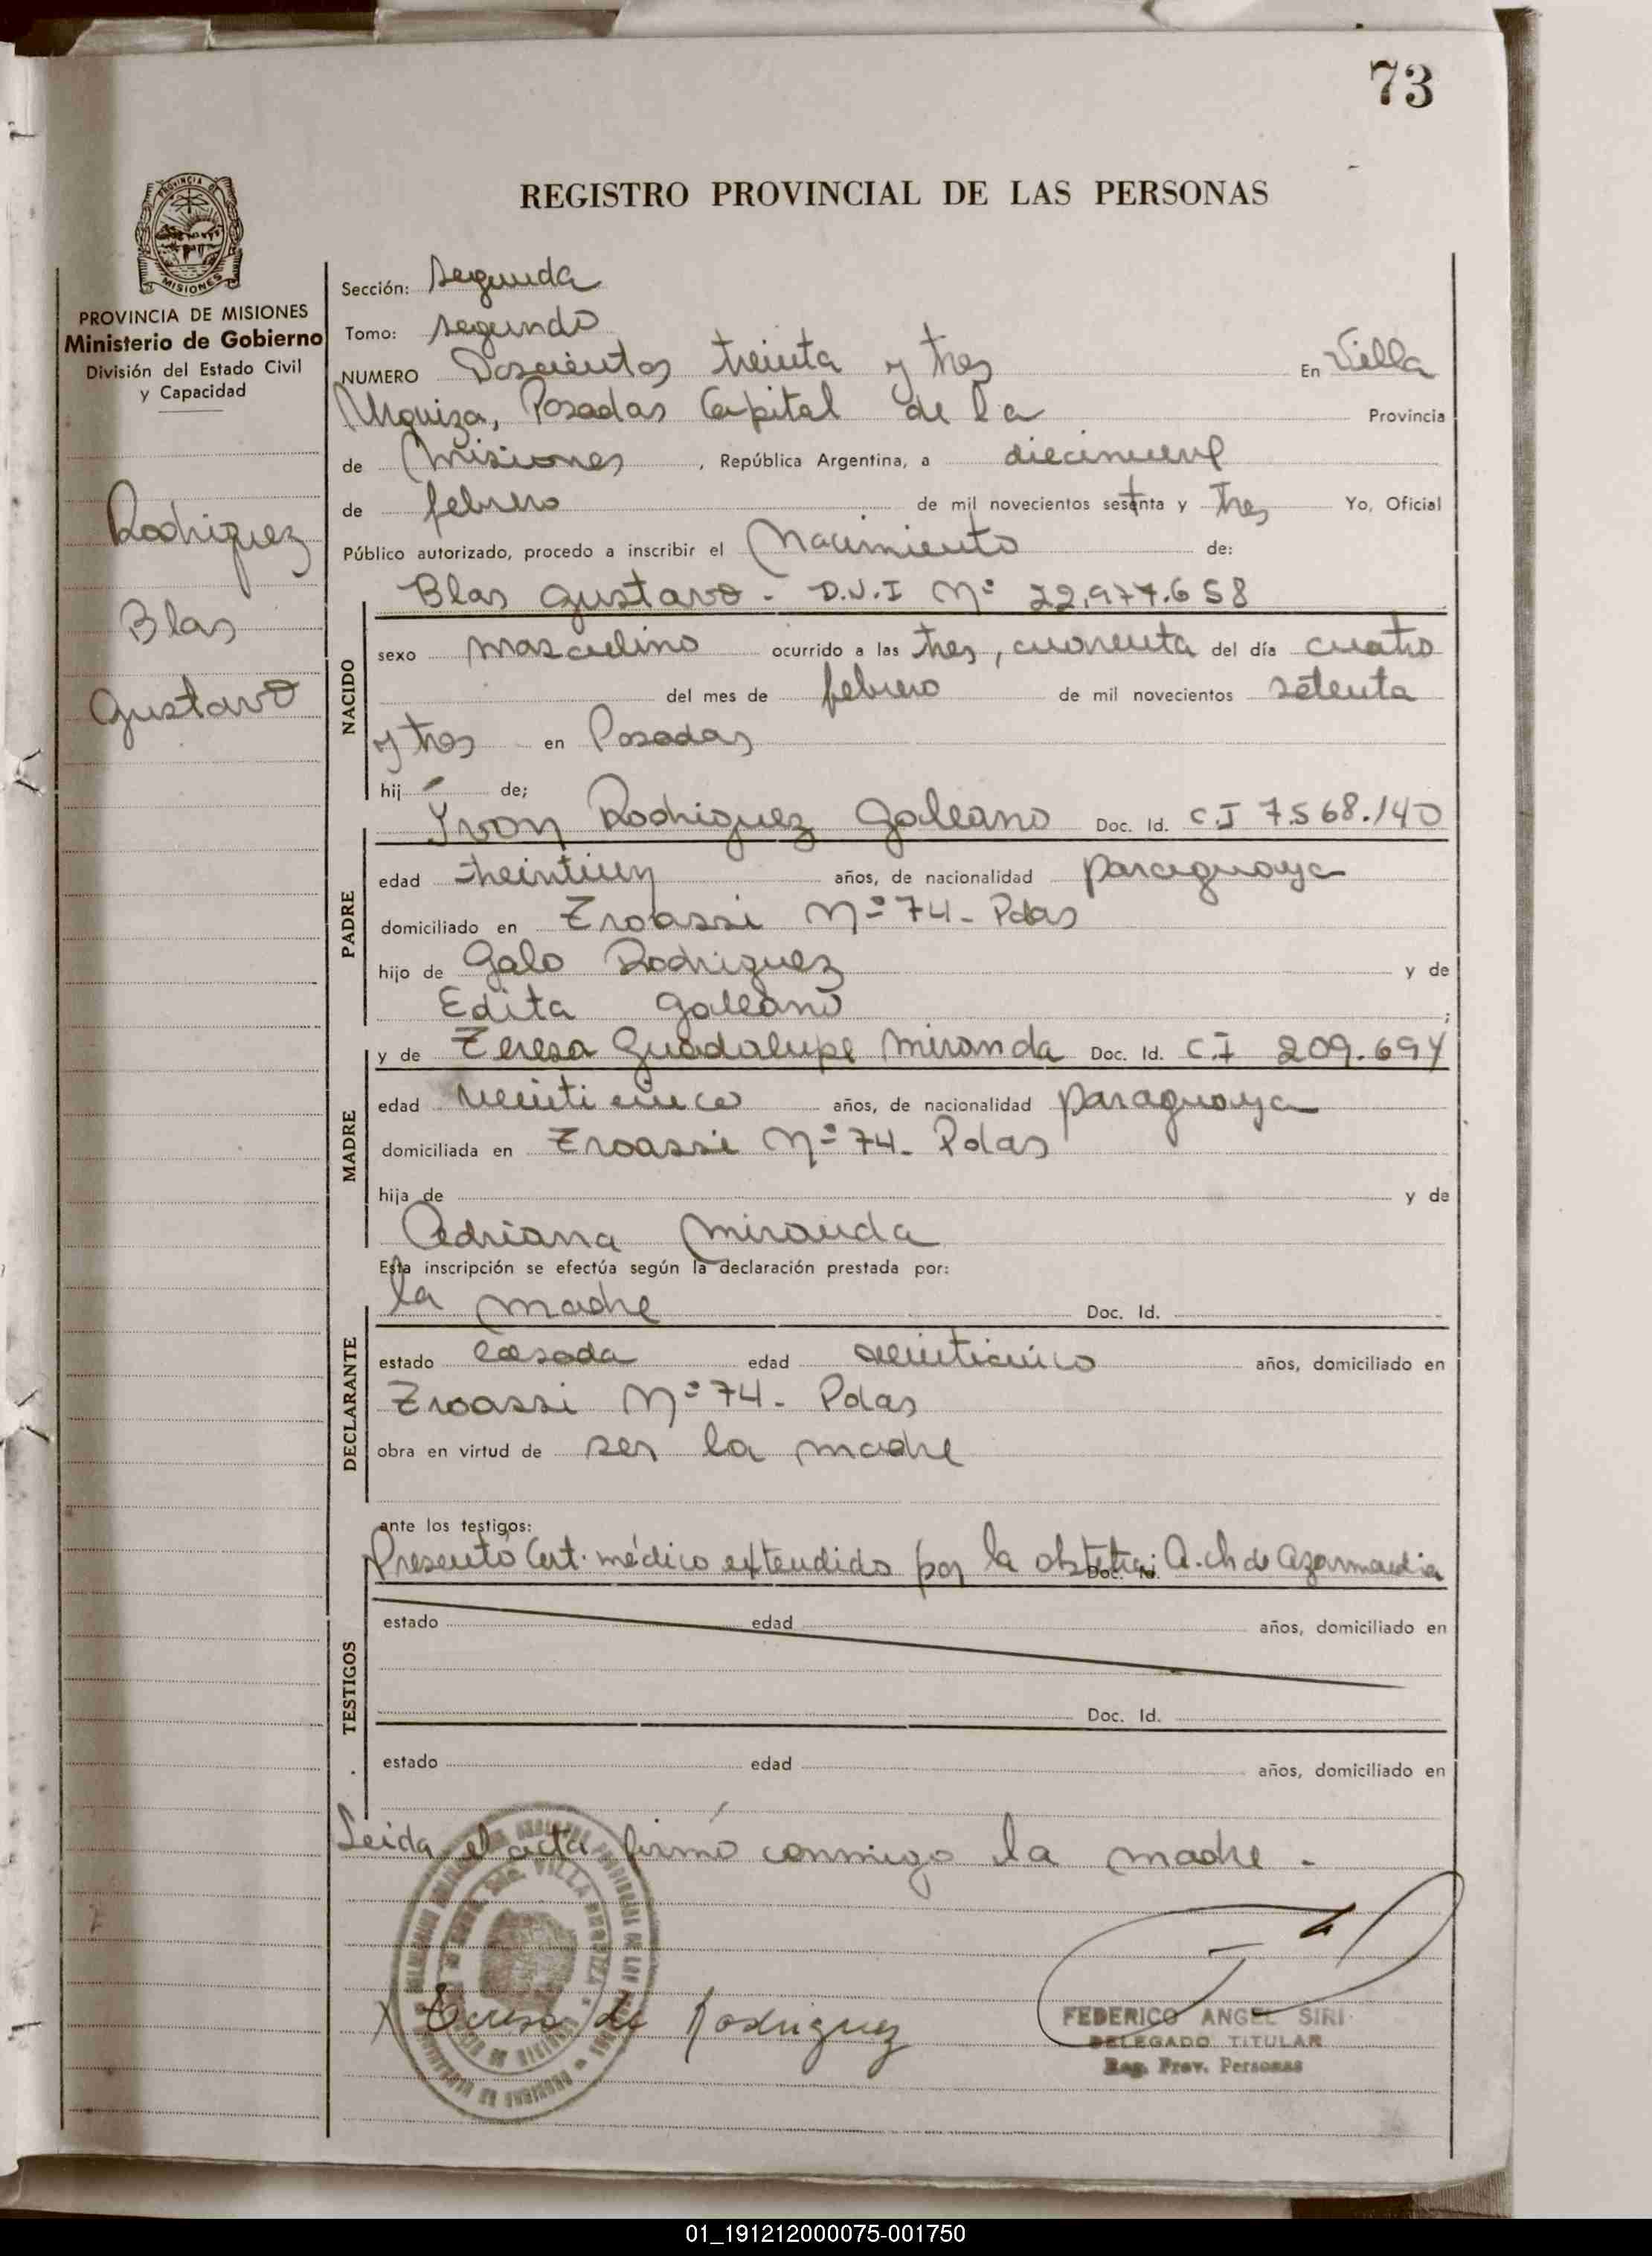 73
REGISTRO PROVINCIAL DE LAS PERSONAS
PROVINCIA DE MISIONES
Ministerio de Gobierno
División del Estado Civil
y Capacidad
Rodriguez
Blas
Gustavo
Sección: segunda
Tomo: segundo
NUMERO Doscientos treinta y tres En Villa
Urquiza, Posadas Capital de la Provincia
de Misiones, República Argentina, a diecinueve
de febrero de mil novecientos setenta y tres Yo, Oficial
Público autorizado, procedo a inscribir el Nacimiento de:
Blas Gustavo - D.N.I Nº 22.977.658
NACIDO
sexo masculino ocurrido a las tres, cuarenta del día cuatro
del mes de febrero de mil novecientos setenta
y tres en Posadas
hij de;
PADRE
Rodriguez Galeano Doc. Id. C.I 7.568.140
edad treintiun años, de nacionalidad paraguaya
domiciliado en Nº 74 - Pdas
hijo de Galo Rodriguez y de
Edita Galeano ;
MADRE
y de Teresa Guadalupe Miranda Doc. Id. C.I 209.694
edad veinticinco años, de nacionalidad paraguaya
domiciliada en Nº 74 - Pdas
hija de y de
Adriana Miranda
Esta inscripción se efectúa según la declaración prestada por:
DECLARANTE
la madre Doc. Id.
estado casada edad veinticinco años, domiciliado en
Nº 74 - Pdas
obra en virtud de ser la madre
ante los testigos:
TESTIGOS
Presentó Cert. médico extendido por la A. ch de
estado edad años, domiciliado en
Doc. Id.
estado edad años, domiciliado en
Leida el acta firmó conmigo la madre -
Teresa de Rodriguez
FEDERICO ANGEL SIRI
DELEGADO TITULAR
Reg. Prov. Personas
01_191212000075-001750